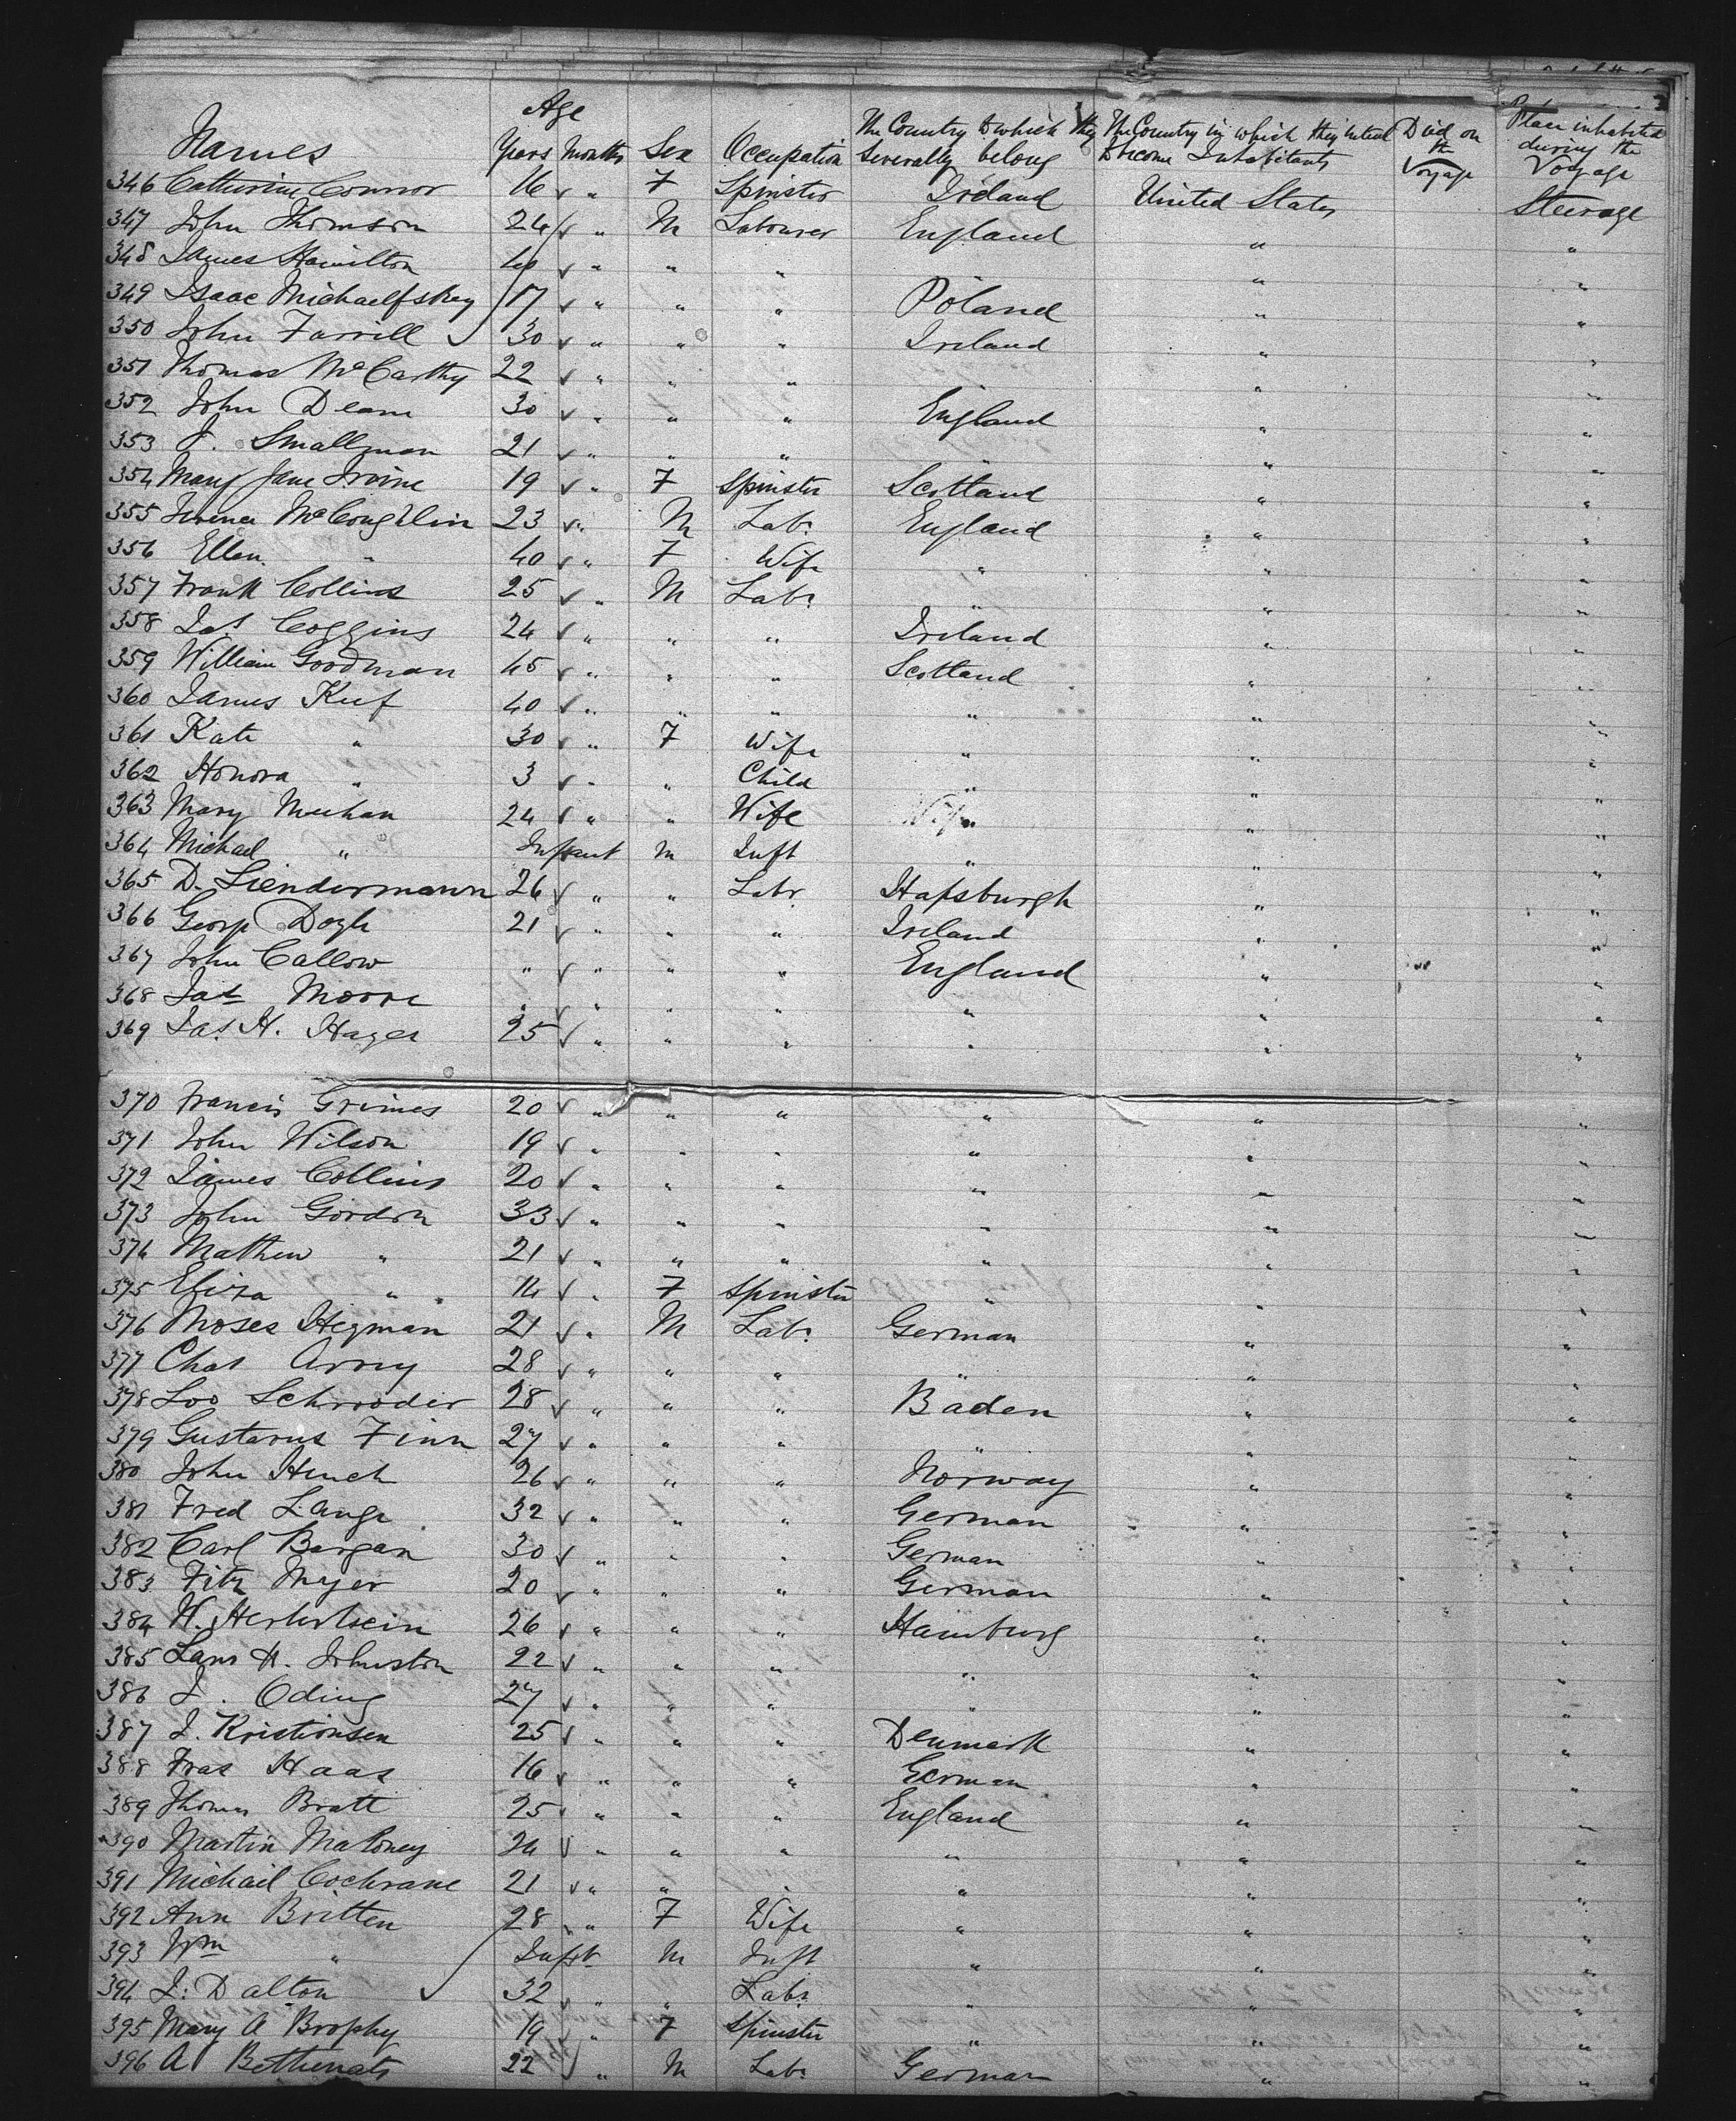 Names Age Years Months Sex Occupation The Country to which they severally belong The Country in which they intend to become Inhabitants Died on the Voyage Place inhabited during the Voyage
346 Catherine Connor 16 " F Spinster Ireland United States Steerage
347 John Thomson 24 " M Labourer England " "
348 James Hamilton 40 " " " " "
349 Isaac Michaelfskey 17 " " " Poland " "
350 John Farrill 30 " " " Ireland " "
351 Thomas McCarthy 22 " " " " "
352 John Deam 30 " " " England " "
353 J. Smallman 21 " " " " " "
354 Mary Jane Irvine 19 " F Spinster Scotland " "
355 Terence McCoughlin 23 " M Labr England " "
356 Ellen " 40 " F Wife " " "
357 Frank Collins 25 " M Labr " " "
358 Jas Coggins 24 " " " Ireland " "
359 William Goodman 45 " " " Scotland " "
360 James Keef 40 " " " " " "
361 Kate " 30 " F Wife " " "
362 Honora " 3 " " Child " " "
363 Mary Meehan 24 " " Wife " " "
364 Michael " Infant M Inft " " "
365 D. Liendermann 26 " " Labr Hapsburgh " "
366 Georg Doyle 21 " " " Ireland " "
367 John Callow " " " " England " "
368 Jas Moore " " " " " " "
369 Jas. H. Hager 25 " " " " " "
370 Francis Grimes 20 " " " " " "
371 John Wilson 19 " " " " " "
372 James Collins 20 " " " " " "
373 John Gordon 33 " " " " " "
374 Mathew " 21 " " " " " "
375 Eliza " 14 " F Spinster " " "
376 Moses Hegman 21 " M Labr German " "
377 Chas Arny 28 " " " " " "
378 Loo Schrooder 28 " " " Baden " "
379 Gustavus Finn 27 " " " " " "
380 John Hench 26 " " " Norway " "
381 Fred Lange 32 " " " German " "
382 Carl Bargan 30 " " " German " "
383 Fitz Meyer 20 " " " German " "
384 W. 26 " " " Hamburg " "
385 Lars H. Johnston 22 " " " " " "
386 J. Oding 27 " " " " " "
387 J. Kristionsen 25 " " " Denmark " "
388 Fras Haas 16 " " " German " "
389 Thomas Bratt 25 " " " England " "
390 Martin Maloney 24 " " " " " "
391 Michail Cochrane 21 " " " " " "
392 Ann Britten 28 " F Wife " " "
393 Wm " Inft M Inft " " "
394 J. Dalton 32 " " Labr " " "
395 Mary A Brophy 19 " F Spinster " " "
396 A 22 " M Labr German " "